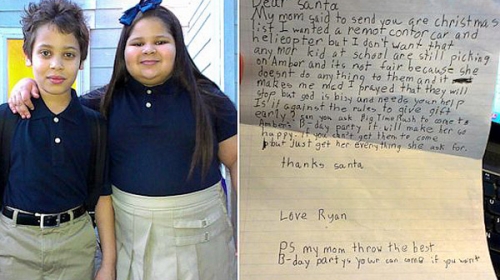 Dear santa
My mom said to send you are christmas
list I wanted a remot contor car and
helicopter but I don't want that
any mor kid at school are still picking
on Amber and its not fair because she
doesnt do anything to them and it
makes me mad I prayed that they will
stop but god is bizy and needs your help
Is it against the rules to give gift
early? can you ask Big Time Rush to come to
Amber's B-day party it will make her so
happy. if you can't get them to come
but just get her everything she ask for.
thanks santa
Love Ryan
PS my mom throw the best
B-day partys your can come if you want